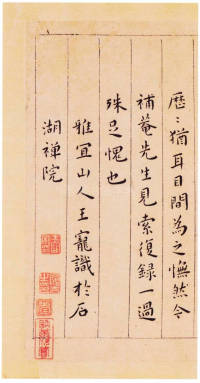 歷：猶耳目間為之憮然今
補菴先生見索復錄一過
殊足愧也
雅宜山人王寵識於石
湖禪院